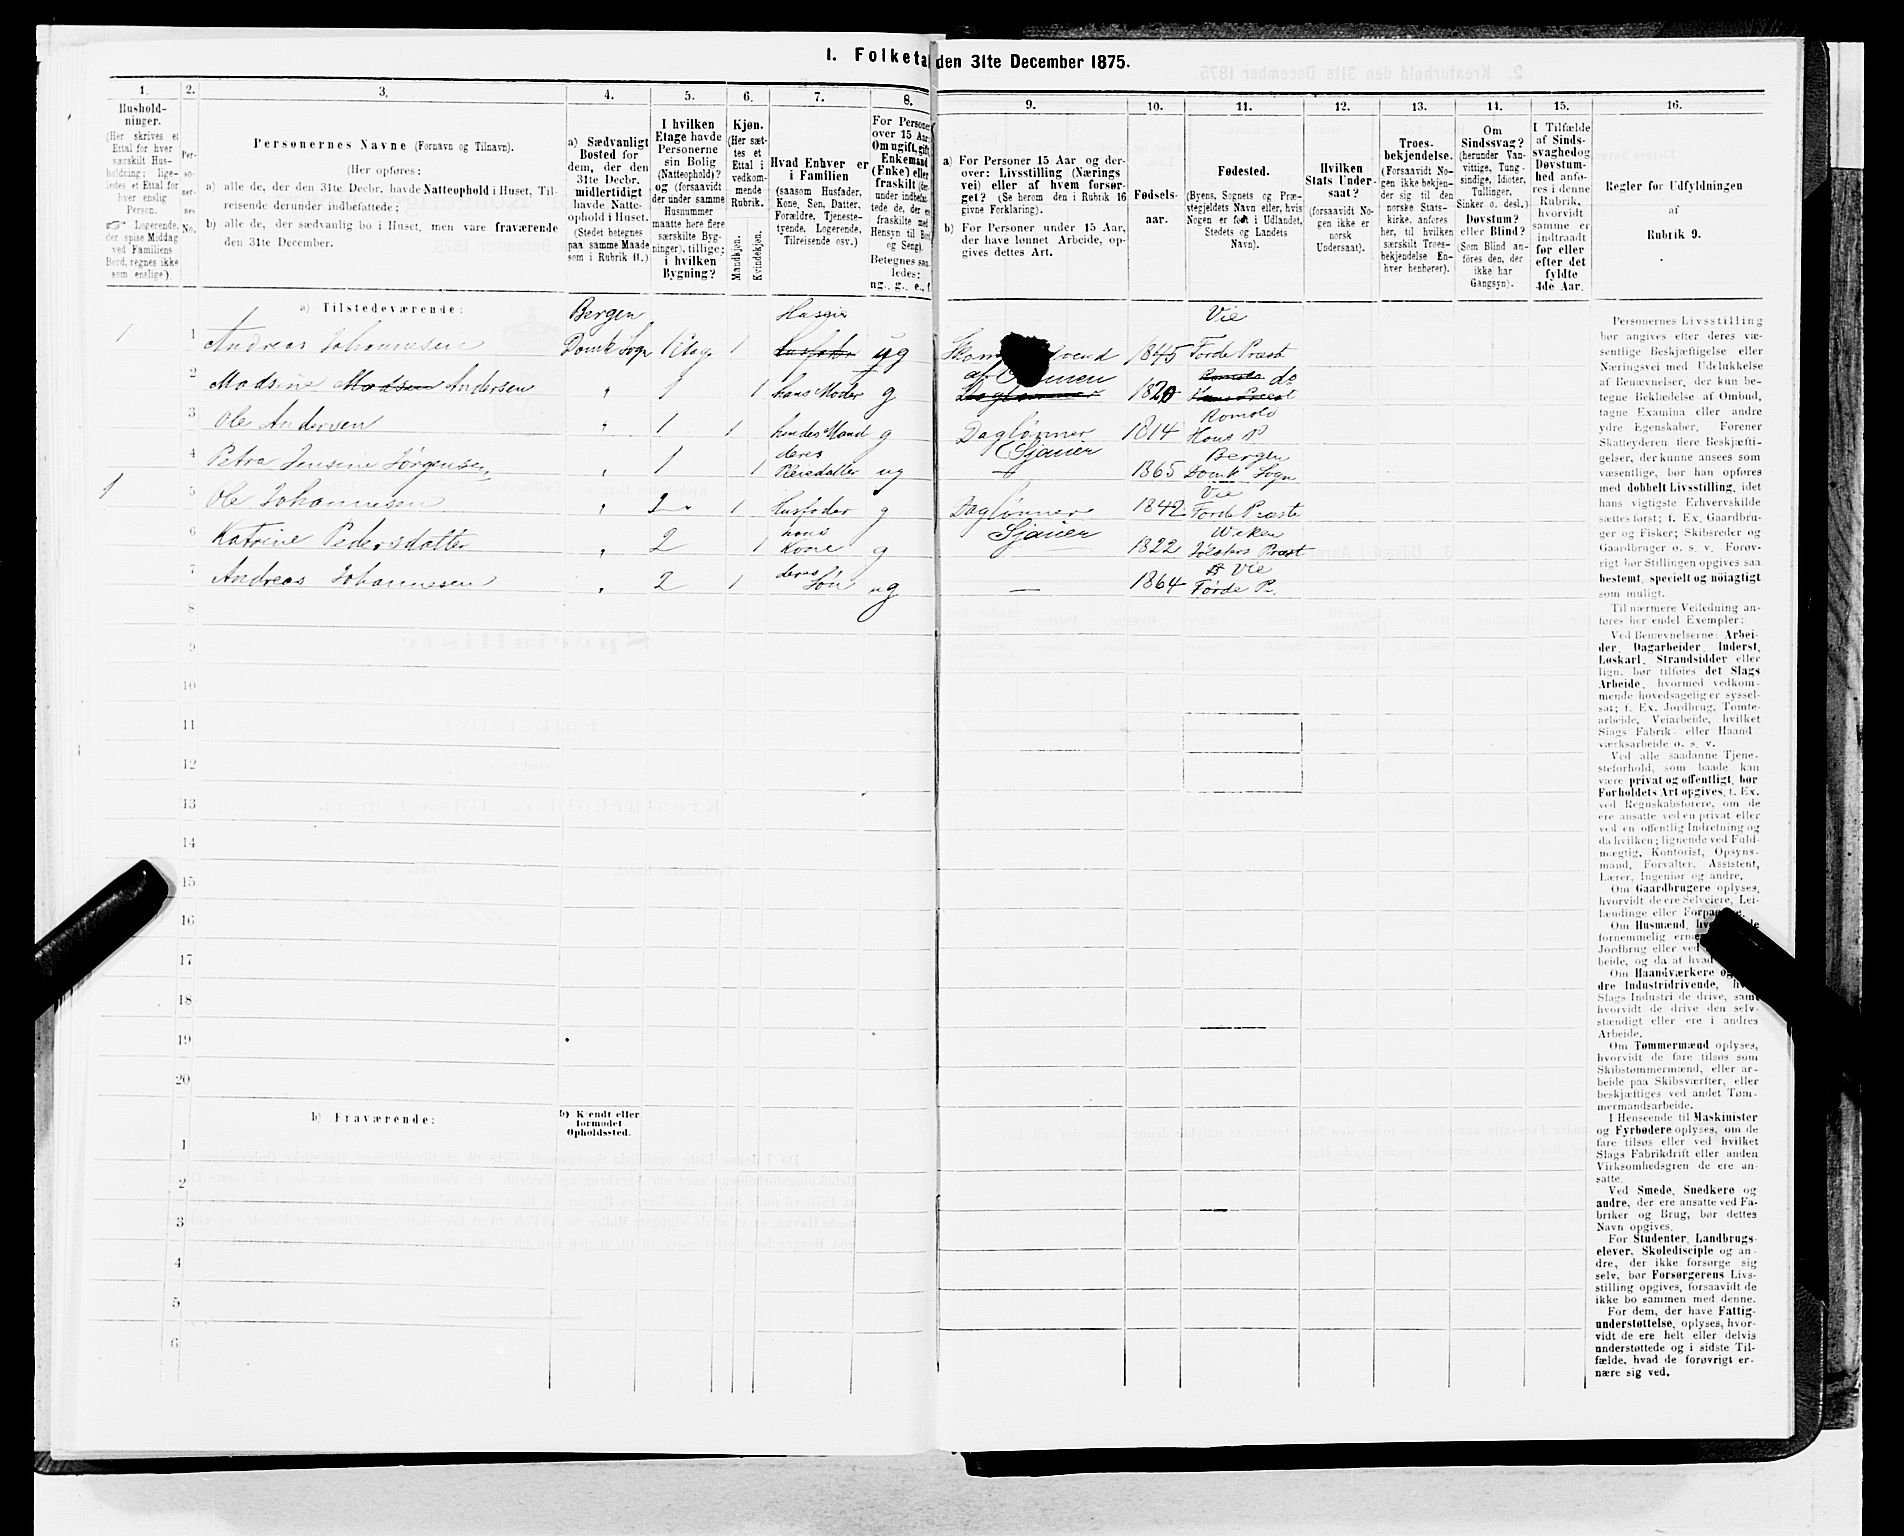 1. Folketa den 31te December 1875.
1. 2. 3. 4. 5. 6. 7. 8. 9. 10. 11. 12. 13. 14. 15. 16.
Hushold-
ninger.
(Her skrives et
Ettal for hver
særskilt Hus-
holdning; lige-
ledes et Ettal for
hver enslig
Person.
☞ Logerende,
der spise Middag
ved Familiens
Bord, regnes ikke
som enslige)
Per-
so-
ner-
nes
No.
Personernes Navne (Fornavn og Tilnavn).
(Her opføres:
a) alle de, der den 31te Decbr. havde Natteophold i Huset, Til-
reisende derunder indbefattede;
b) alle de, der sædvanlig bo i Huset, men vare fraværende
den 31te December.
a) Sædvanligt
Bosted for
dem, der den
31te Decbr.
midlertidigt
havde Natte-
ophold i Huset.
(Stedet betegnes
paa samme Maade
som i Rubrik 11.)
I hvilken
Etage havde
Personerne
sin Bolig
(Natteophold)?
og (forsaavidt
der under samme
Husnummer
maatte høre flere
særskilte Byg-
ninger), tillige:
i hvilken
Bygning?
Kjøn.
(Her sæt-
tes et
Ettal i
vedkom-
mende
Rubrik.
Mandkjøn.
Kvindekjøn.
Hvad Enhver er
i Familien
(saasom Husfader,
Kone, Søn, Datter,
Forældre, Tjeneste-
tyende, Logerende,
Tilreisende osv.)
For Personer
over 15 Aar:
Om ugift, gift,
Enkemand
(Enke) eller
fraskilt (der-
under indbefat-
tede de, der er
fraskilte med
Hensyn til Bord
og Seng).
Betegnes saa-
ledes:
ug., g., e., f.
a) For Personer 15 Aar og der-
over: Livsstilling (Nærings-
vei) eller af hvem forsør-
get? (Se herom den i Rubrik 16
givne Forklaring).
b) For Personer under 15 Aar,
der have lønnet Arbeide, op-
gives dettes Art.
Fødsels-
aar.
Fødested.
(Byens, Sognets og Præ-
stegjeldets Navn eller, hvis
Nogen er født i Udlandet,
Stedets og Landets
Navn).
Hvilken
Stats Under-
saat?
(forsaavidt No-
gen ikke er
norsk
Undersaat).
Troes-
bekjendelse.
(Forsaavidt No-
gen ikke bekjen-
der sig til den
norske Stats-
kirke, anføres
her, til hvilken
særskilt Troes-
bekjendelse En-
hver henhører).
Om
Sindssvag?
(herunder Van-
vittige, Tung-
sindige, Idioter,
Tullinger,
Sinker o. desl.)
Døvstum?
eller Blind?
(Som Blind an-
føres den, der
ikke har
Gangsyn).
I Tilfælde
af Sinds-
svaghed og
Døvstum-
hed anfø-
res i denne
Rubrik,
hvorvidt
samme er
indtraadt
før eller
efter det
fyldte
4de Aar.
Regler for Udfyldningen
af
Rubrik 9.
a) Tilstedeværende:
1 1 Andreas Johannesen Bergen Domk Sogn 1 Etag. 1 Husfader ug Skom svend 1845 Vie Førde Præst
2 Madsine Madsen Andersen " 1 1 hans Moder g Daglønner 1820 do
3 Ole Andersen " 1 1 hendes Mand g Daglønner 1814 Romolo Hous P
4 Petra Jensine Jørgensen " 1 1 deres Pleiedatter ug Sjauer — 1865 Bergen Domk Sogn
1 5 Ole Johannesen " 2 " 1 Husfader g Daglønner 1842 Vie Førde Præste
6 Katrine Pedersdatter " 2 1 hans Kone g Sjauer 1822 Jølsters Præst
7 Andreas Johannesen " 2 1 deres Søn ug — 1864 Vie Førde P.
8
9
10
11
12
13
14
15
16
17
18
19
20
b) Fraværende: b) Kjendt eller
formodet
Opholdssted.
1
2
3
4
5
6
Personernes Livsstilling
bør angives efter deres væ-
sentlige Beskjæftigelse eller
Næringsvei med Udelukkelse
af Benævnelser, der kun be-
tegne Beklædelse af Ombud,
tagne Examina eller andre
ydre Egenskaber. Forener
Skatteyderen flere Beskjæfti-
gelser, der kunne ansees som
væsentlige, bør han opføres
med dobbelt Livsstilling, idet
hans vigtigste Erhvervskilde
sættes først; f. Ex. Gaardbru-
ger og Fisker; Skibsreder og
Gaardbruger o. s. v. Forøv-
rigt bør Stillingen opgives saa
bestemt, specielt og nøiagtigt
som muligt.
Til nærmere Veiledning an-
føres her endel Exempler:
Ved Benævnelserne: Arbei-
der, Dagarbeider, Inderst,
Løskarl, Strandsidder eller
lign. bør tilføies det Slags
Arbeide, hvormed vedkom-
mende hovedsagelig er syssel-
sat; f. Ex. Jordbrug, Tomte-
arbeide, Veiarbeide, hvilket
Slags Fabrik- eller Haand-
værksarbeide o. s. v.
Ved alle saadanne Tjene-
steforhold, som baade kan
være privat og offentligt, bør
Forholdets Art opgives, f. Ex.
ved Regnskabsførere, om de
ere ansatte ved en privat eller
ved en offentlig Indretning og
da hvilken; lignende ved Fuld-
mægtig, Kontorist, Opsyns-
mand, Forvalter, Assistent,
Lærer, Ingeniør og andre.
Om Gaardbrugere oplyses,
hvorvidt de ere Selveiere, Lei-
lendinge eller Forpagtere.
Om Husmænd,
fornemmelig
Jordbrug eller ved
beide, og da af hvad
Om Haandværkere og
dre Industridrivende,
Slags Industri de drive, samt
hvorvidt de drive den selv-
stændigt eller ere i andres
Arbeide.
Om Tømmermænd oplyses,
hvorvidt de fare tilsøs som
Skibstømmermænd, eller ar-
beide paa Skibsværfter, eller
beskjæftiges ved andet Tøm-
mermandsarbeide.
I Henseende til Maskinister
og Fyrbødere oplyses, om de
fare tilsøs eller ved hvilket
Slags Fabrikdrift eller anden
Virksomhedsgren de ere an-
satte.
Ved Smede, Snedkere og
andre, der ere ansatte ved Fa-
briker og Brug, bør dettes
Navn opgives.
For Studenter, Landbrugs-
elever, Skoledisciple og an-
dre, der ikke forsørge sig
selv, bør Forsørgerens Livs-
stilling opgives, forsaavidt de
ikke bo sammen med denne.
For dem, der have Fattig-
understøttelse, oplyses, hvor-
vidt de ere helt eller delvis
understøttede og i sidste Til-
fælde, hvad de forøvrigt er-
nære sig ved.